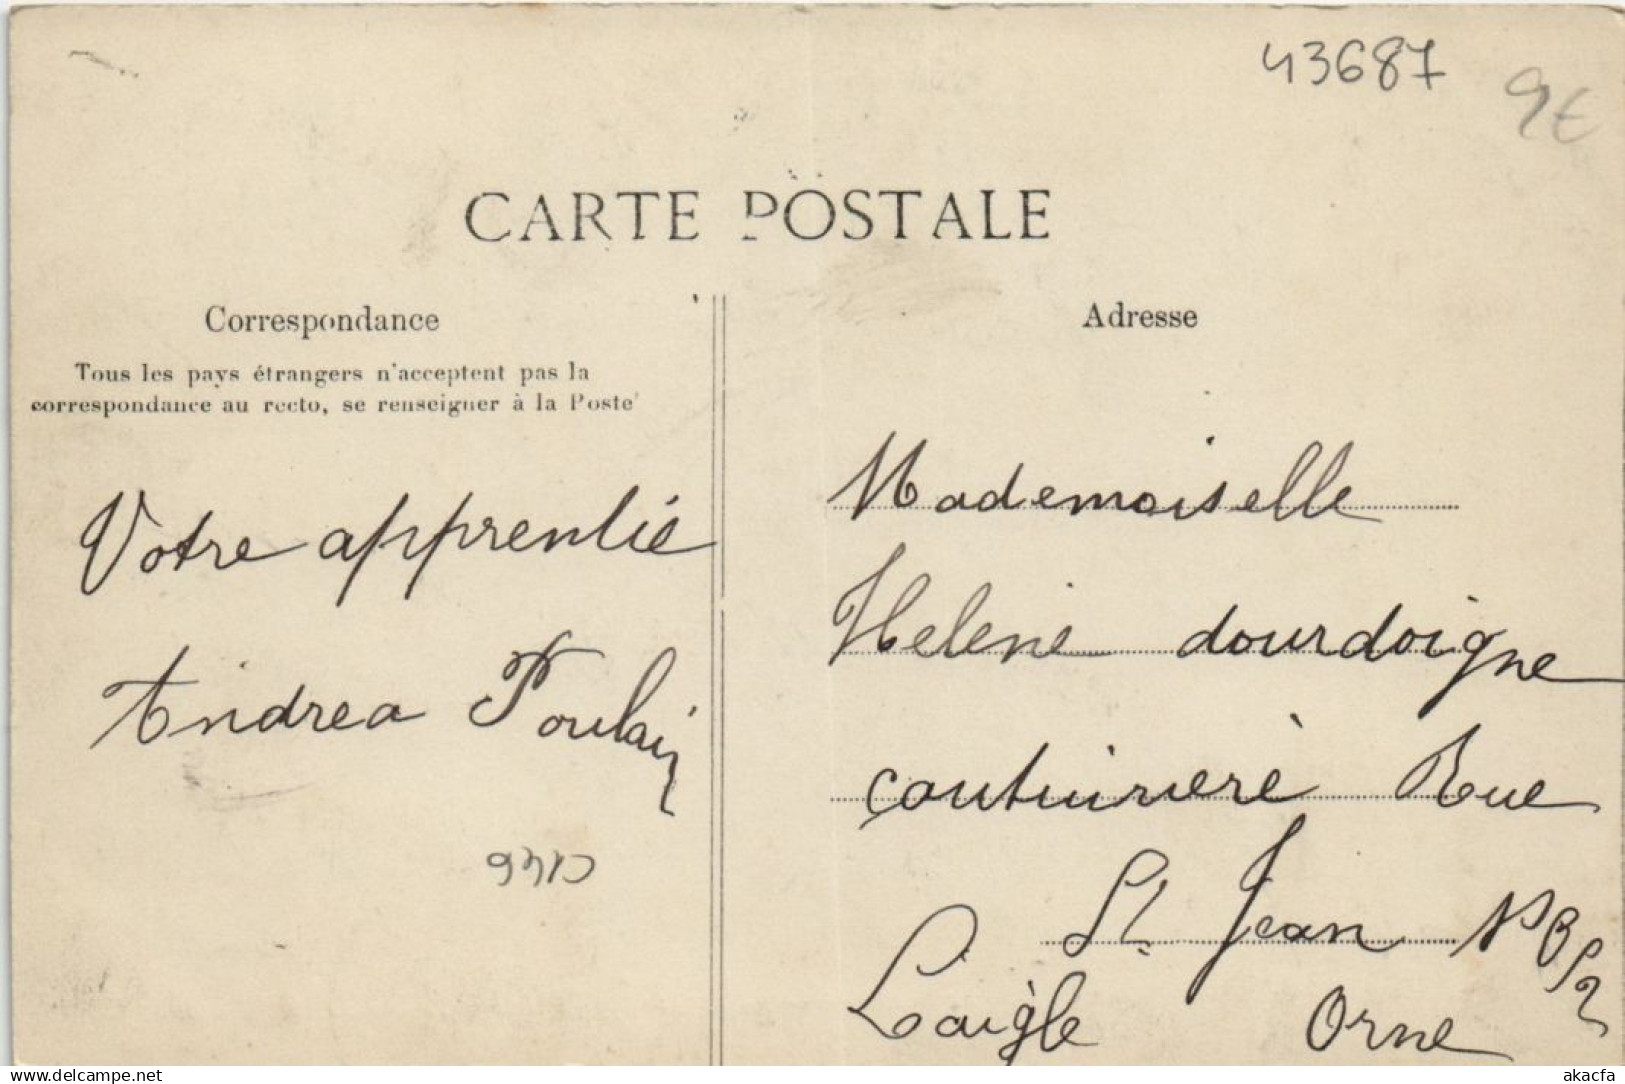 43687
9€
CARTE POSTALE
Correspondance
Tous les pays étrangers n'acceptent pas la
correspondance au recto, se renseigner à la Poste
Votre apprentie
Andrea Poulain
Adresse
Mademoiselle
Helene dourdoigne
couturiere Rue
St. Jean
Laigle Orne
www.delcampe.net
akacfa